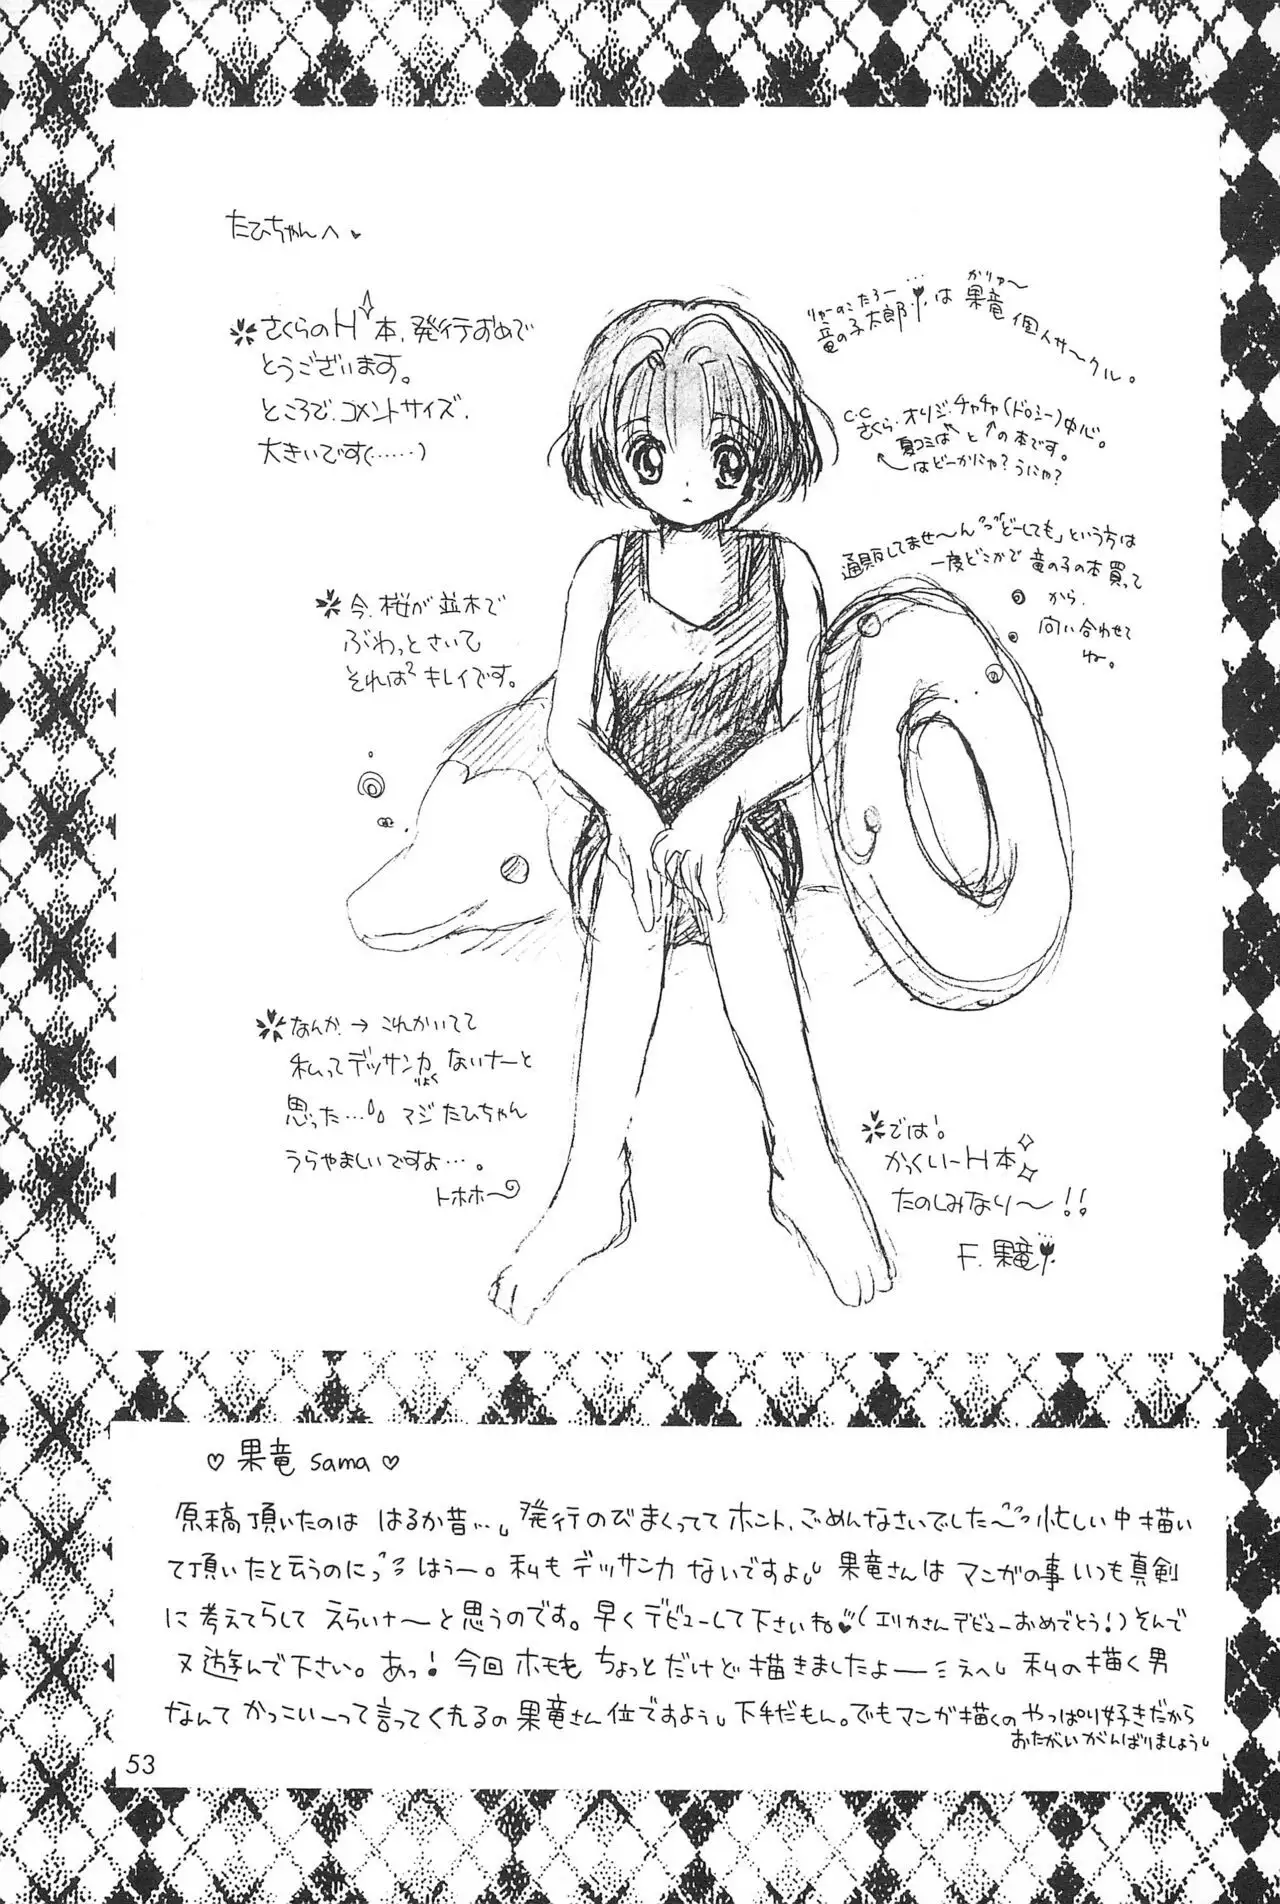 たひちゃんへ
さくらのH本、発行おめで
とうございます。
ところで、コメントサイズ、
大きいです(……)
りゅーのこたろー…
竜の子太郎、は
かりゅ〜
果竜個人サークル。
C.C
さくら、オリジ、チャチャ(ドロシー)中心。
夏コミは と の本です。
はどーかにゃ?うにゃ?
通販してませ〜ん「どーしても」という方は
一度どこかで竜の子の本買って
から、
問い合わせて
ね。
今、桜が並木で
ぶわっとさいて
それは²キレイです。
なんか→これかいてて
私ってデッサン力ないナーと
りょく
思った… マジたひちゃん
うらやましいですよ…。
トホホ〜
では!
かっくいーH本
たのしみなり〜!!
F.果竜
♡果竜sama♡
原稿頂いたのは はるか昔… 発行のびまくってて ホント、ごめんなさいでした〜 忙しい中描い
て頂いたと云うのにっ はぅー。私も デッサン力 ないですよ 果竜さんは マンガの事 いつも真剣
に考えてらして えらいナ〜と思うのです。早くデビューして下さいね (エリカさんデビューおめでとう!)そんで
又遊んで下さい。あっ!今回ホモも ちょっとだけど描きましたよー ミえへ 私の描く男
なんて かっこいーって言ってくれるの果竜さん位ですよう 下手だもん。でもマンガ描くの やっぱり好きだから
おたがいがんばりましょう
53